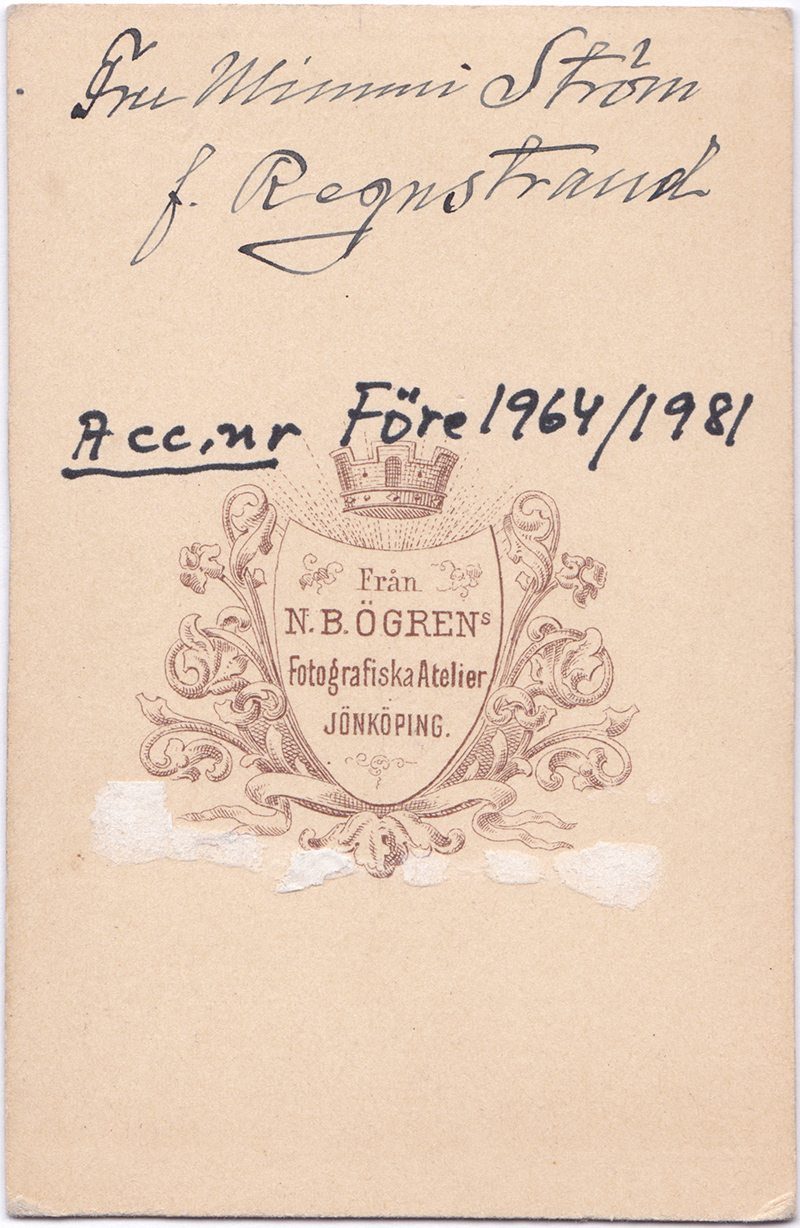 Fru Mimmi Ström
f. Regnstrand
Acc.nr Före 1964/1981
Från
N. B. ÖGRENs
Fotografiska Atelier
JÖNKÖPING.